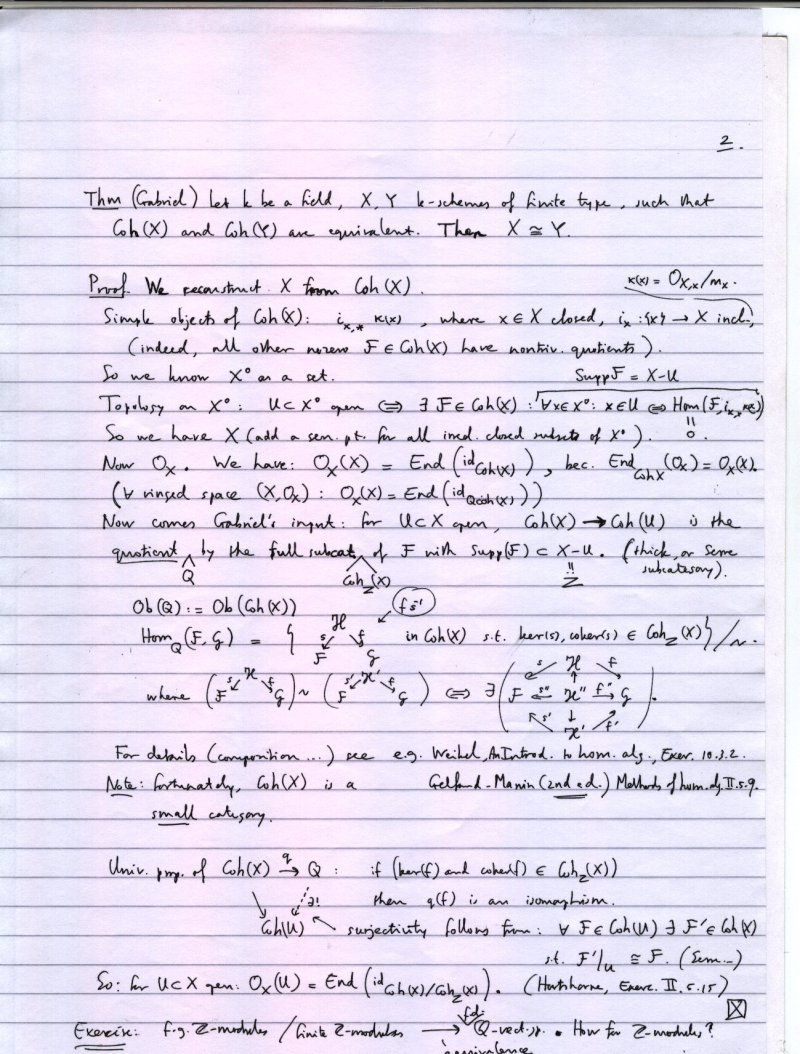 2.
Thm (Gabriel) Let k be a field, X, Y k-schemes of finite type, such that
Coh(X) and Coh(Y) are equivalent. Then X ≅ Y.
Proof. We reconstruct X from Coh(X). κ(x) = O_{X,x}/m_x.
Simple objects of Coh(X): i_{x,*} κ(x), where x ∈ X closed, i_x : {x} → X incl.,
(indeed, all other nonzero F ∈ Coh(X) have nontriv. quotients).
So we know X° as a set. Supp F = X-U
Topology on X°: U ⊂ X° open ⟺ ∃ F ∈ Coh(X) : ∀x∈X°: x∈U ⟺ Hom(F, i_{x,*} κ(x))
So we have X (add a gen. pt. for all irred. closed subsets of X°). = 0.
Now O_X. We have: O_X(X) = End(id_{Coh(X)}), bec. End_{Coh X}(O_X) = O_X(X).
(∀ ringed space (X, O_X) : O_X(X) = End(id_{Qcoh(X)}))
Now comes Gabriel's input: for U ⊂ X open, Coh(X) → Coh(U) is the
quotient Q by the full subcat. Coh_Z(X) of F with Supp(F) ⊂ X-U. (thick, or Serre
= Z subcategory).
Ob(Q) := Ob(Coh(X)) f s⁻¹
Hom_Q(F, G) = { F ←s H →f G in Coh(X) s.t. ker(s), coker(s) ∈ Coh_Z(X) } / ~.
where (F ←s H →f G) ~ (F ←s' H' →f' G) ⟺ ∃ (F ←s H →f G, F ←s'' H'' →f'' G, F ←s' H' →f' G, H ← H'' → H').
For details (composition ...) see e.g. Weibel, An Introd. to hom. alg., Exer. 10.3.2.
Note: fortunately, Coh(X) is a Gelfand-Manin (2nd ed.) Methods of hom. alg. II.5.9.
small category.
Univ. prop. of Coh(X) →q Q : if (ker(f) and coker(f) ∈ Coh_Z(X))
∃! then q(f) is an isomorphism.
Coh(U) surjectivity follows from: ∀ F ∈ Coh(U) ∃ F' ∈ Coh(X)
s.t. F'|_U ≅ F.
So: for U ⊂ X open: O_X(U) = End(id_{Coh(X)/Coh_Z(X)}). (Hartshorne, Exerc. II.5.15)
Exercise: f.g. Z-modules / finite Z-modules → f.d. Q-vect. sp. • How for Z-modules?
equivalence